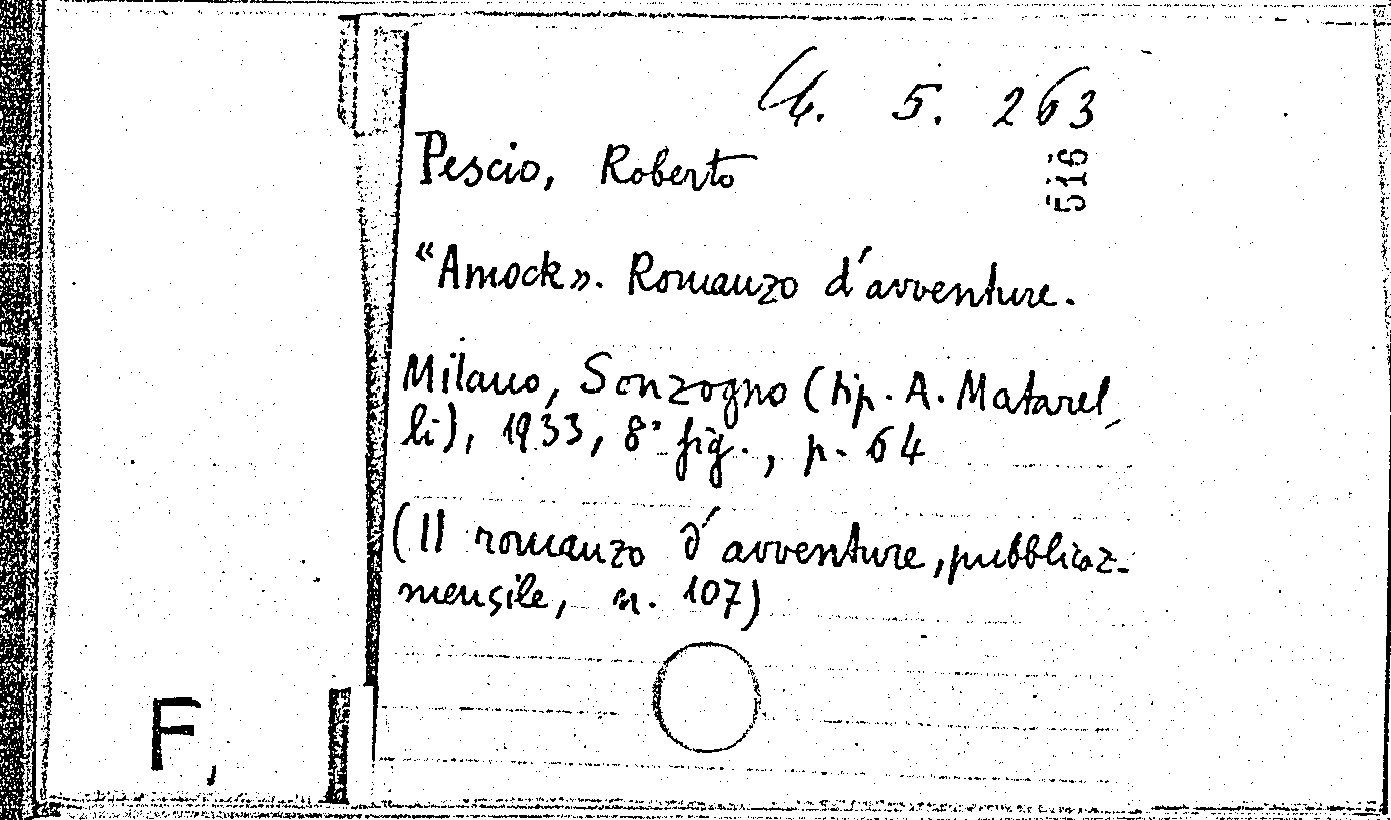 5. 263
516
Pescio, Roberto
"Amock". Romanzo d'avventure.
Milano, Sonzogno (tip. A. Matarel
li), 1933, 8° fig., p. 64
(Il romanzo d'avventure, pubblicaz.
mensile, n. 107)
F,